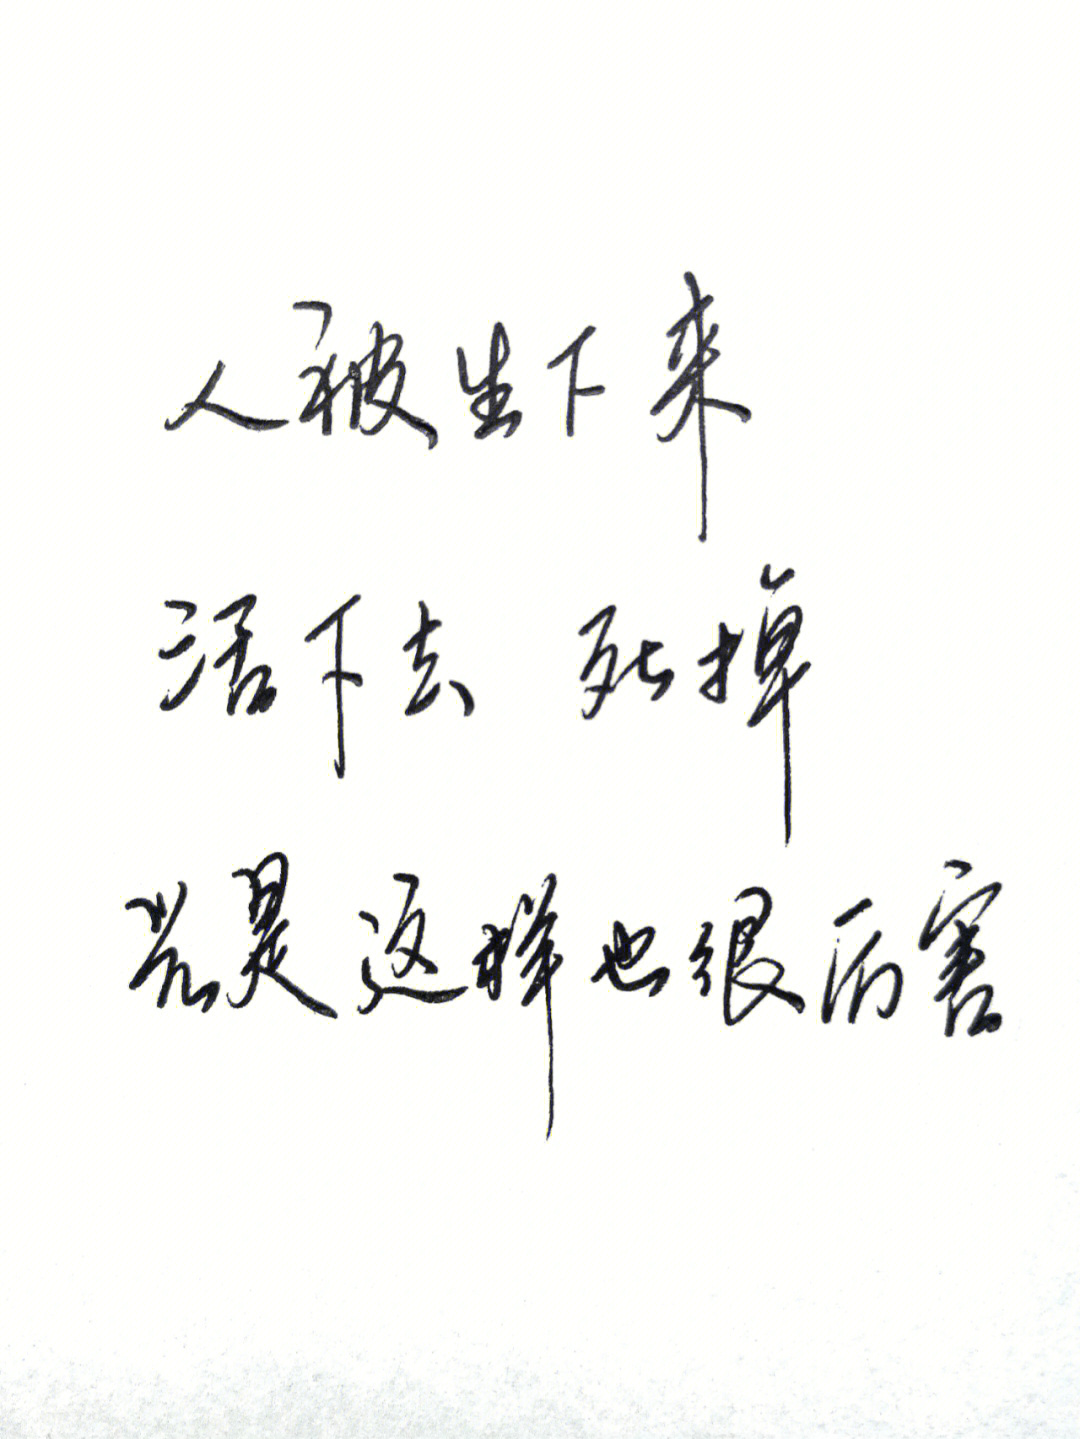 人被生下来
活下去 死掉
光是这样也很厉害